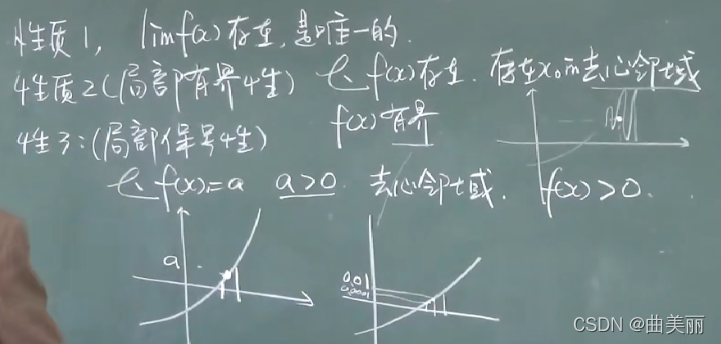 性质1, lim f(x) 存在, 是唯一的.
性质2(局部有界性) lim f(x) 存在. 存在x₀的去心邻域
f(x) 有界
性3:(局部保号性)
lim f(x)=a a>0. 去心邻域. f(x)>0.
a
0.01
CSDN @曲美丽